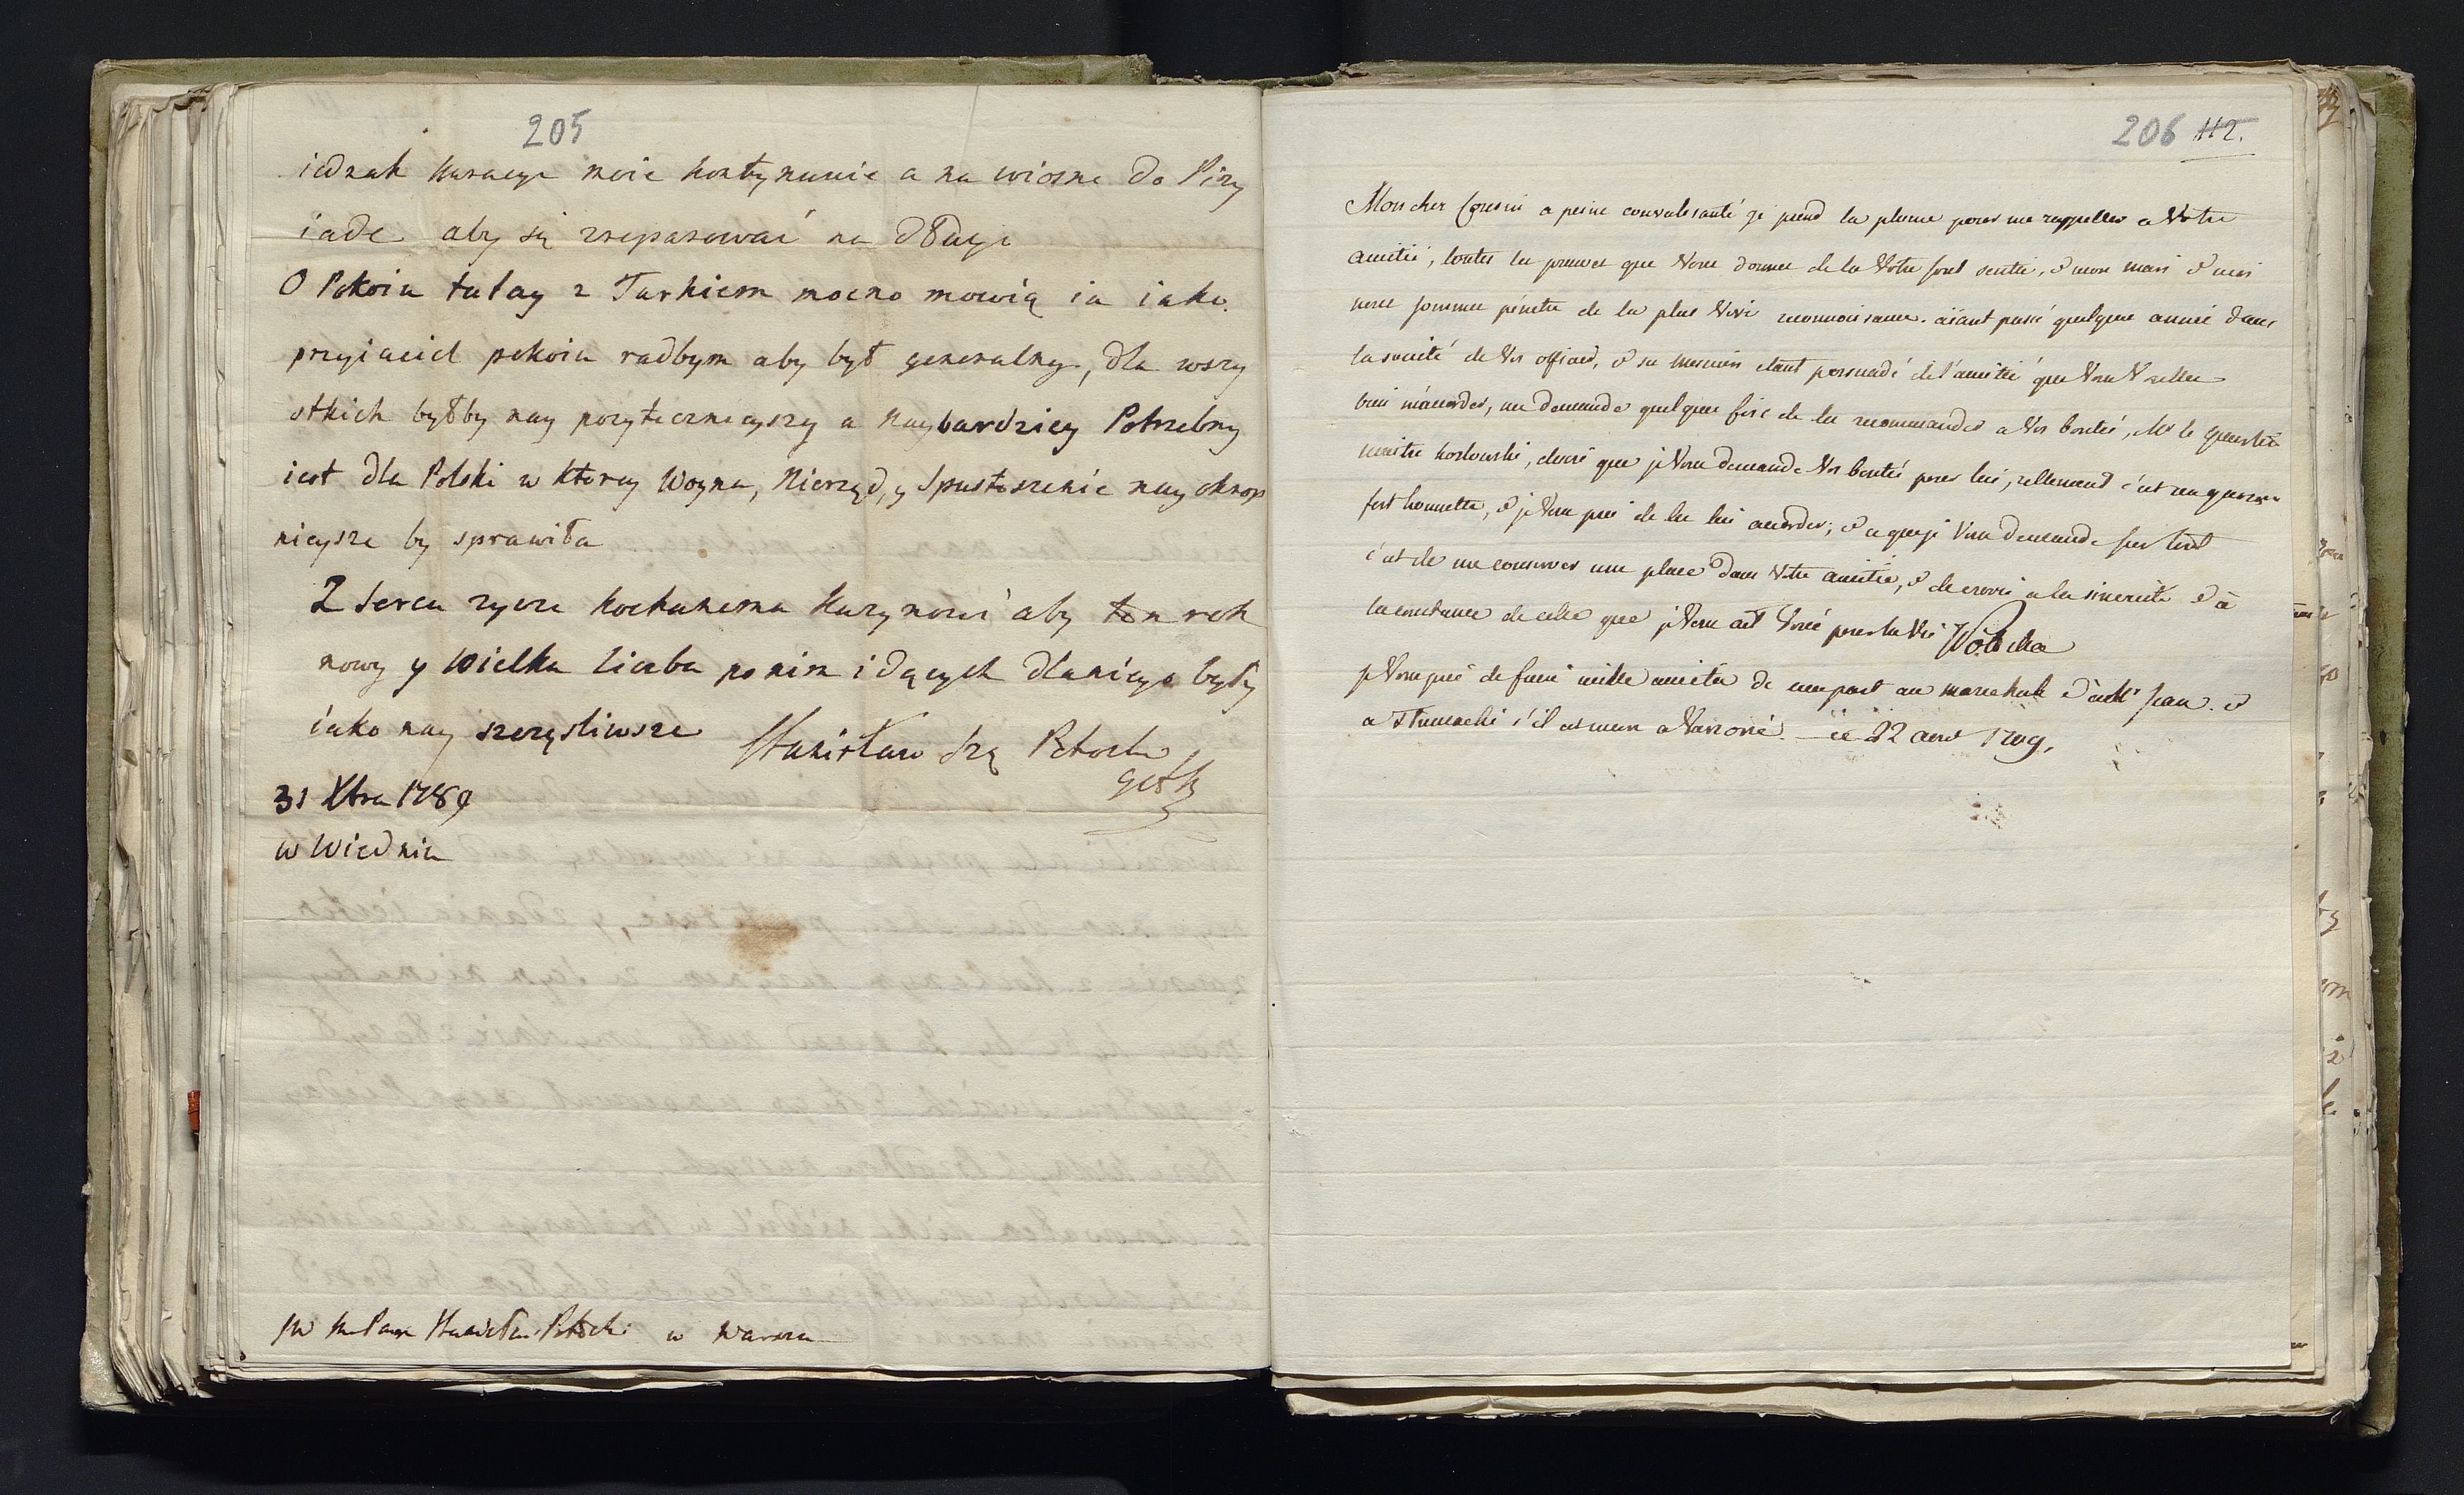 205
iednak kuracye moie kontynuuie a na wiosne do Pizy
iade aby się zreparować na długo
O Pokoiu tutay z Turkiem mocno mowią ia iako
przyiaciel pokoiu radbym aby był generalny, dla wszy
stkich byłby nay pozytecznieyszy a naybardziey Potrzebny
iest dla Polski w ktorey Woyna, Nierząd, y Spustoszenie nay okrop
nieysze by sprawiła
Z serca zycze kochanemu Kuzynowi aby ten rok
nowy y Wielka liczba po nim idących dla niego były
iako nay szczęsliwsze Stanisław Szą Potocki
31 Xbra 1789
w Wiedniu
JW Stanisław Potocki w Warsza
206 112.
Mon cher Cousin a peine convalesante je prend la plume pour me rappeller a Votre
amitié, toutes les preuves que Vous donnez de la Votre sont sentie, & mon mari & moi
nous sommes pénetré de la plus Vive reconnoisance. aïant passé quelque année dans
la societé de Vos officiers, & ces messieurs etant persuadé de l'amitié que Vous Voullez
bien m'accorder, me demande quelque fois de les recommander a Vos bontés, Mr le quartier
maitre Koslowski, desire que je Vous demande Vos bontés pour lui, rellement c'est un
fort honnette, & je Vous prie de les lui accorder, & ce que je Vous demande sur tout
c'est de me conserver une place dans Votre amitié, & de croire a la sincerité & à
la constance de celle que je Vous ait Voué pour la Vie
je Vous prie de faire mille amitiés de ma part au marechale & à Mr Jean. &
a s'il est encore a Varsovie. ce 22 aout